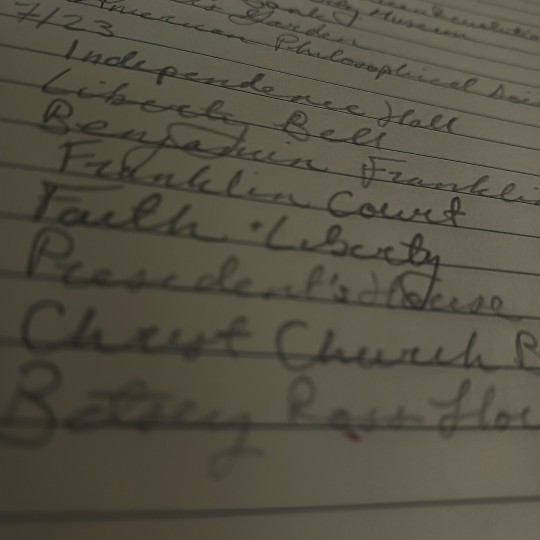 Museum
Garden
American Philosophical
7/23
Independence Hall
Liberty Bell
Benjamin Franklin
Franklin Court
Faith & Liberty
President's House
Christ Church B
Betsey Ross Hou